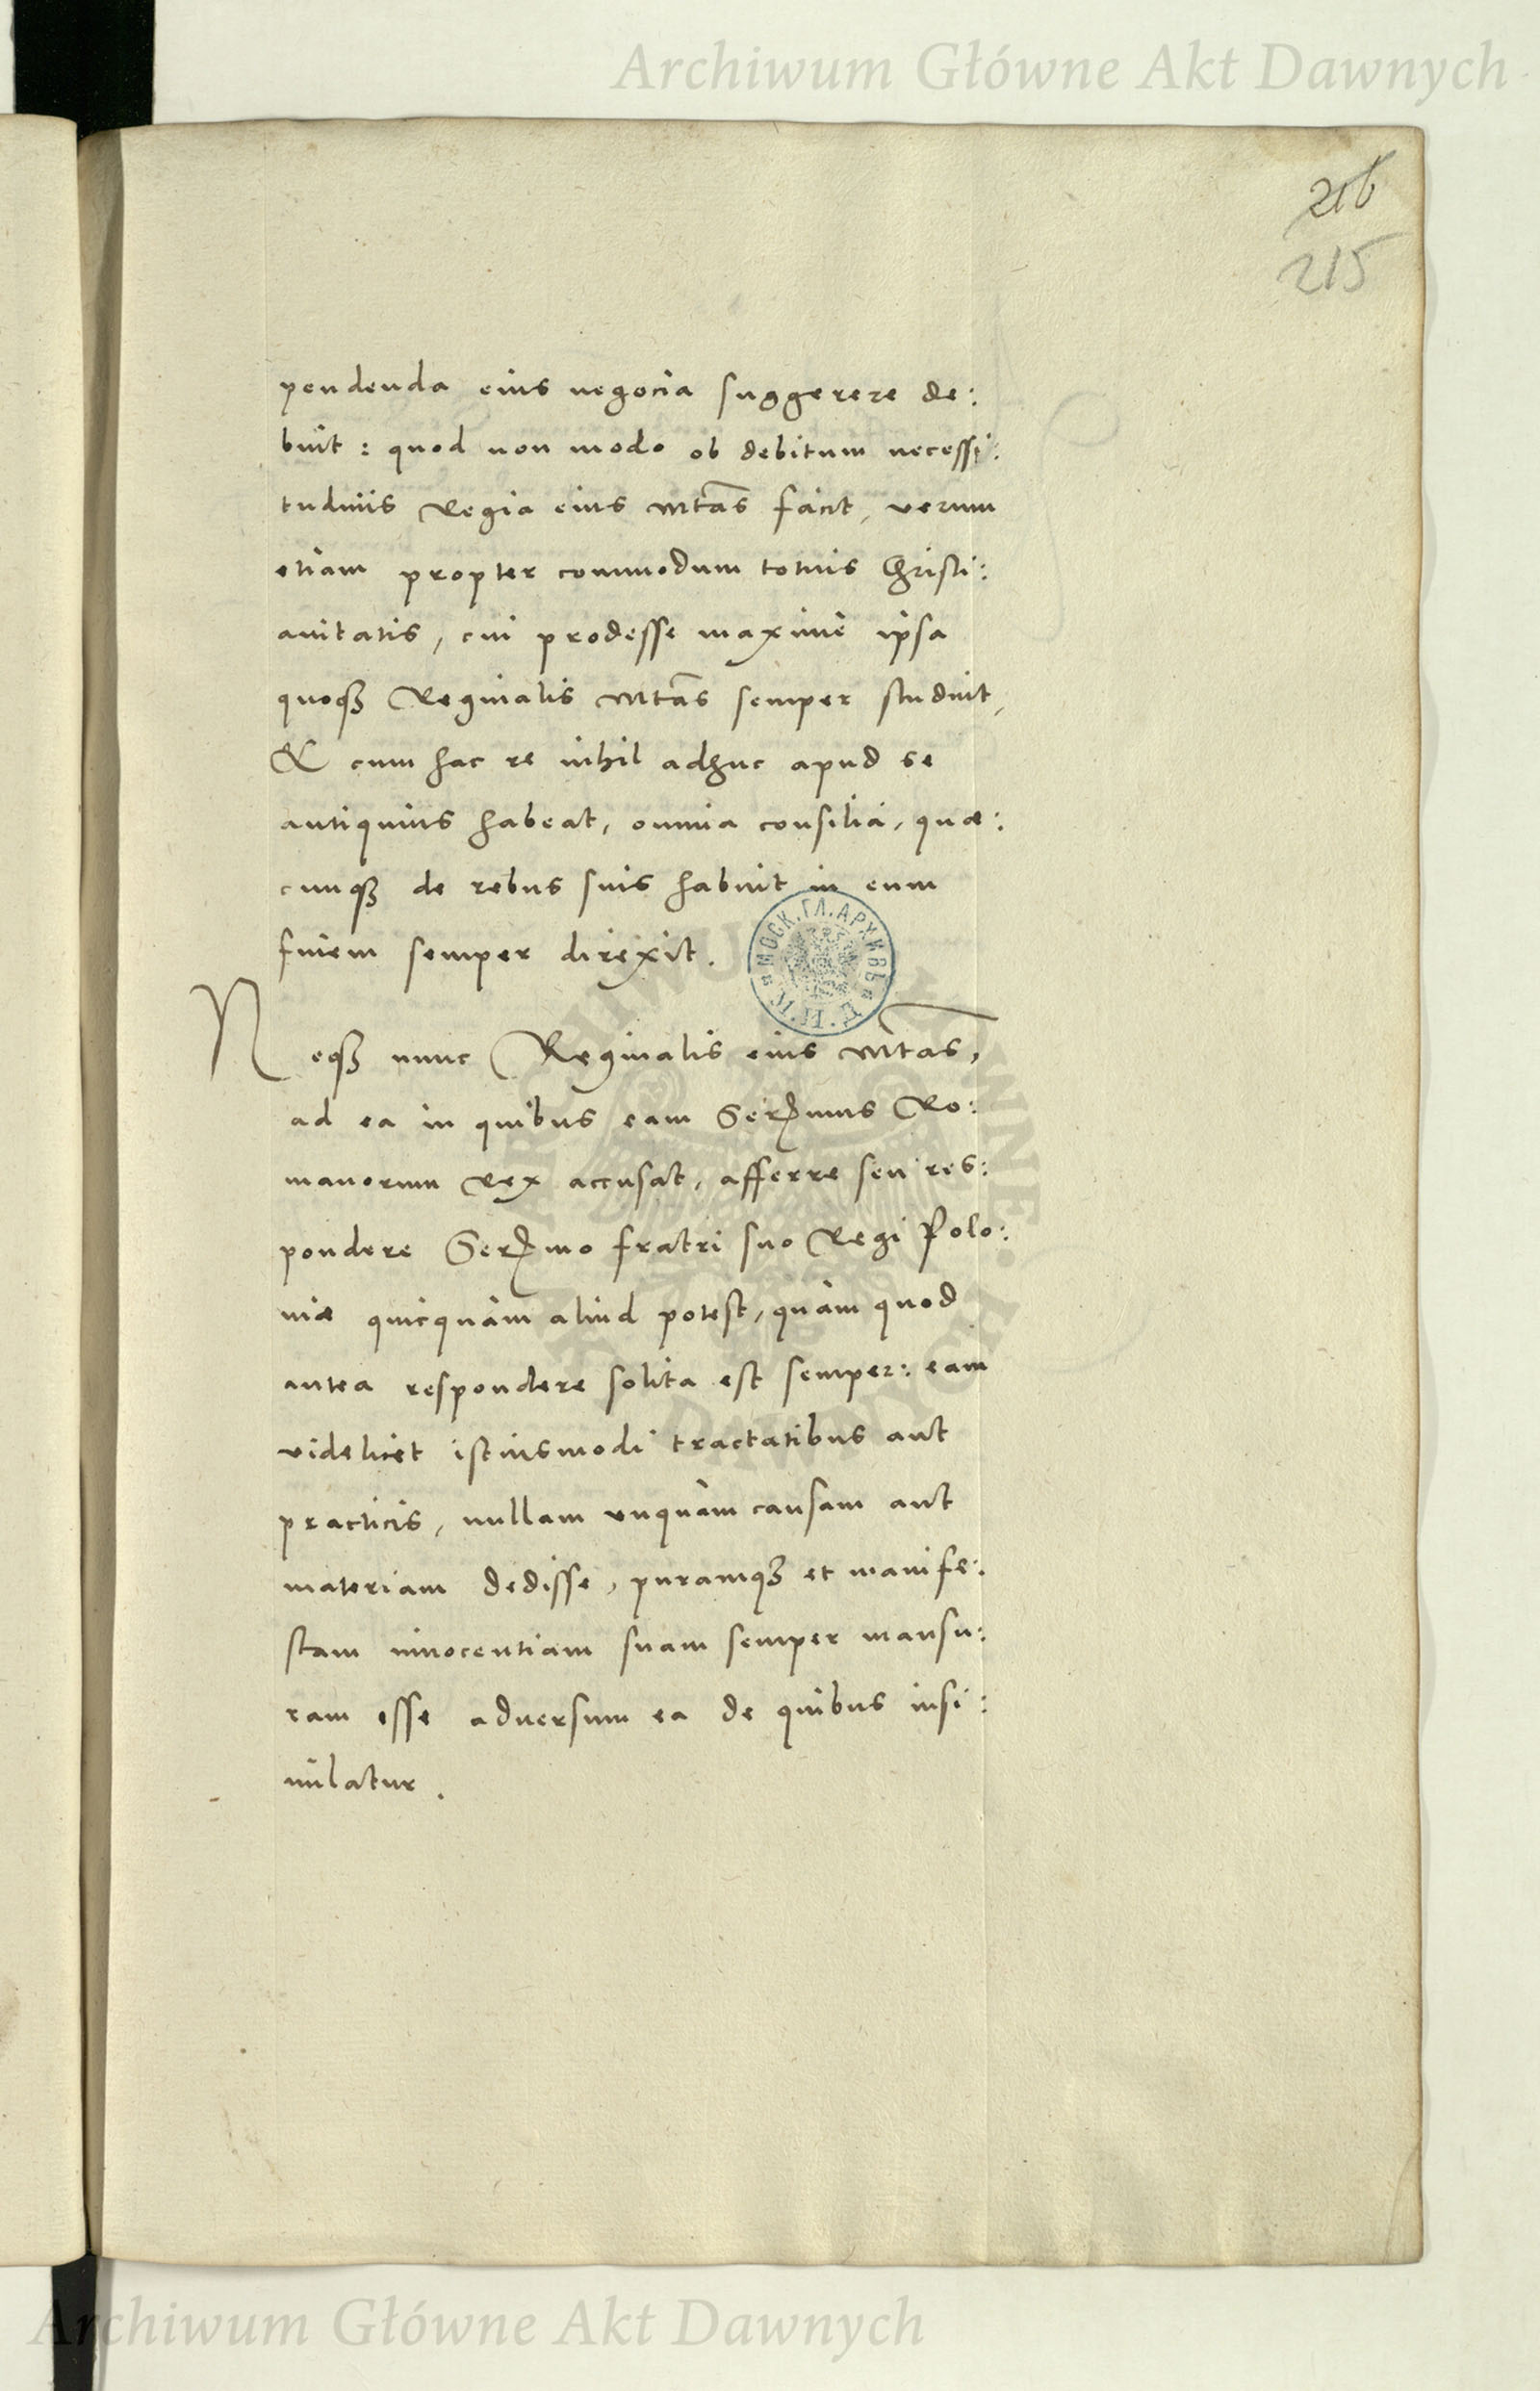 Archiwum Główne Akt Dawnych
216
215
pendenda eius negocia suggerere de:
buit: quod non modo ob debitum necessi:
tudinis Regia eius Mtas facit, verum
etiam propter commodum totius Christi:
anitatis, cui prodesse maxime ipsa
quoqȝ Reginalis Mtas semper studuit,
& cum hac re nihil adhuc apud se
antiquius habeat, omnia consilia, quæ:
cunqȝ de rebus suis habuit in eum
finem semper direxit.
МОСК. ГЛ. АРХИВЪ
Neqȝ nunc Reginalis eius Mtas,
ad ea in quibus eam Serᵐimus Ro:
manorum Rex accusat, afferre seu res:
pondere Serᵐmo fratri suo Regi Polo:
niæ quicquàm aliud potest, quàm quod
antea respondere solita est semper: eam
videlicet istiusmodi tractatibus aut
practicis, nullam unquàm causam aut
materiam dedisse, puramqȝ et manife:
stam innocentiam suam semper mansu:
ram esse adversum ea de quibus insi:
mulatur.
Archiwum Główne Akt Dawnych